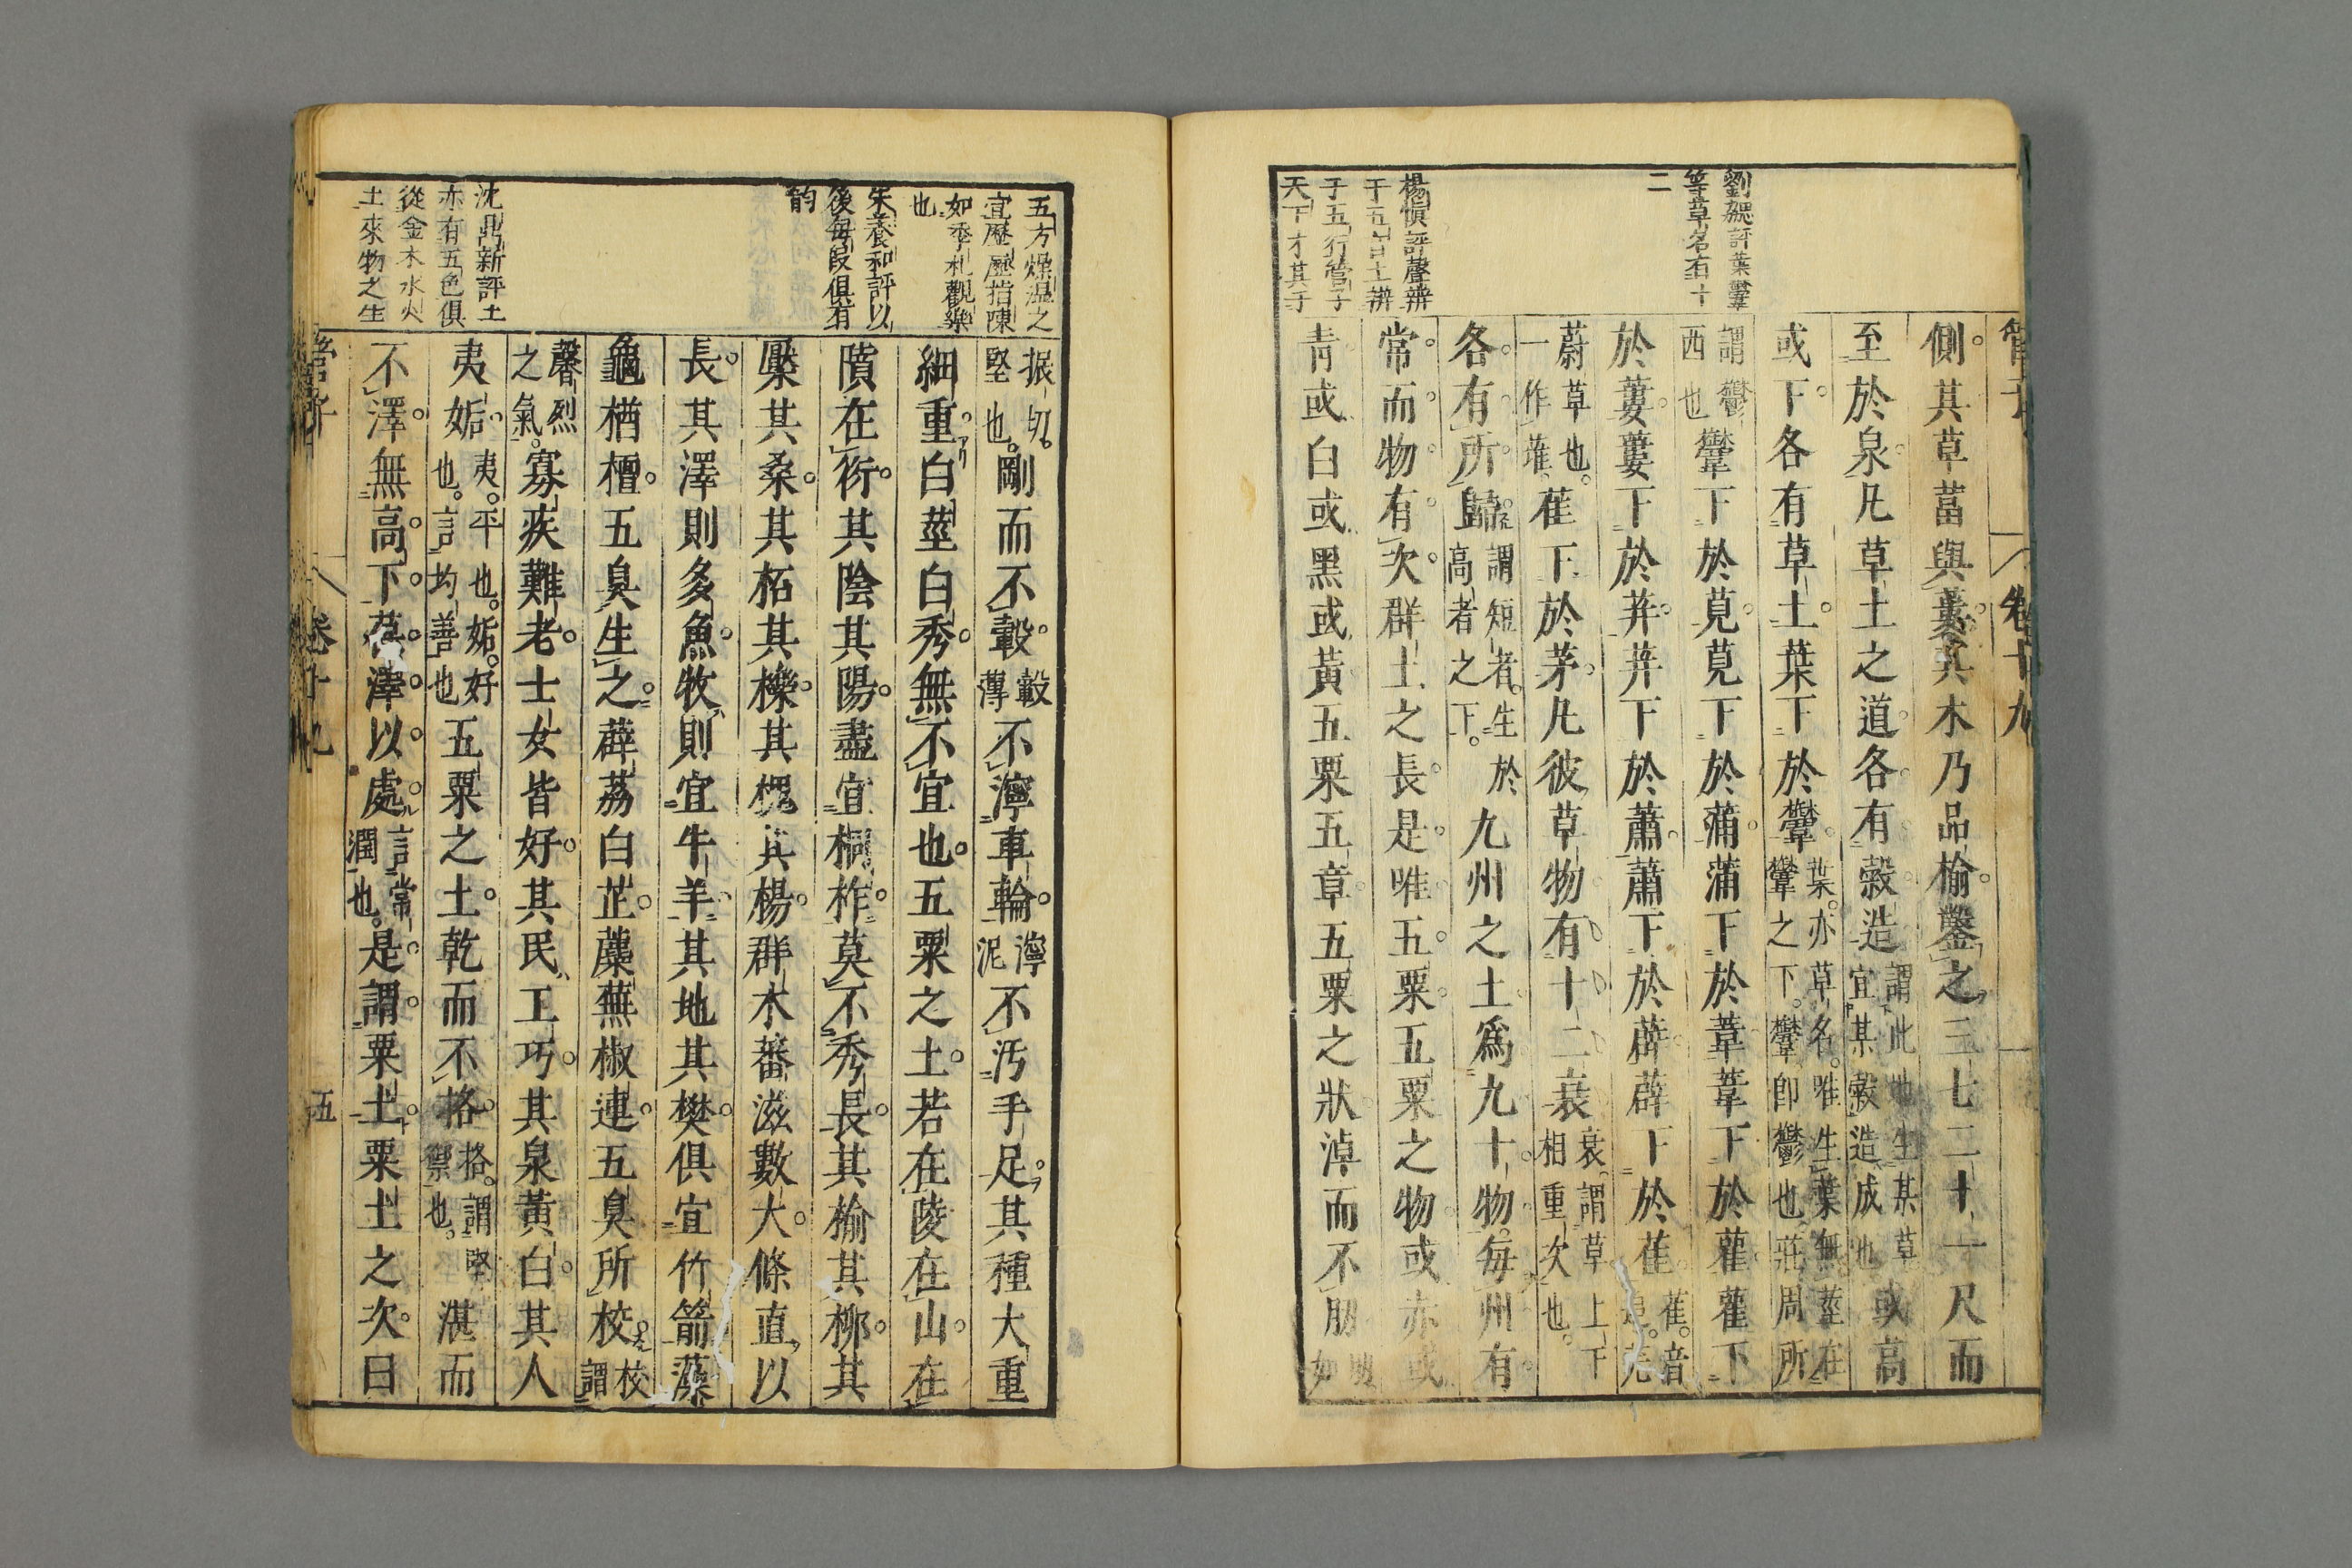 管子
卷十九
劉勰評葉䕬
等草名有十
二
楊慎評聲辨
于五音土辨
于五行管子
天下才其于
側其草䔰與蔞其木乃品榆鑿之三七二十一尺而
至於泉凡草土之道各有穀造謂此地生某草宜某穀造成也或高
或下各有草土葉下於䕬葉亦草名唯生葉無莖在䕬之下䕬即鬱也莊周所
謂鬱西也䕬下於莧莧下於蒲蒲下於葦葦下於雚雚下
於蔞蔞下於荓荓下於蕭蕭下於薜薜下於萑萑音追
蔚草也一作蓷萑下於茅凡彼草物有十二衰衰謂草上下相重次也
各有所歸謂短者生於高者之下九州之土爲九十物每州有
常而物有次群土之長是唯五粟五粟之物或赤或
青或白或黑或黃五粟五章五粟之狀淖而不肕
五方燥濕之
宜歷歷指陳
如季札觀樂
也
朱養和評以
後每段俱有
韵
沈鼎新評土
亦有五色俱
從金木水火
土來物之生
振切堅也剛而不觳觳薄不濘車輪濘泥不汚手足其種大重
細重白莖白秀無不宜也五粟之土若在陵在山在
隫在衍其陰其陽盡宜桐柞莫不秀長其榆其柳其
檿其桑其柘其櫟其槐其楊群木蕃滋數大條直以
長其澤則多魚牧則宜牛羊其地其樊俱宜竹箭藻
龜楢檀五臭生之薜荔白芷蘪蕪椒連五臭所校校謂
馨烈之氣寡疾難老士女皆好其民工巧其泉黃白其人
夷姤夷平也姤好也言均善也五粟之土乾而不格格謂堅禦也湛而
不澤無高下葆澤以處言常潤也是謂粟土粟土之次曰
管子
卷十九
五